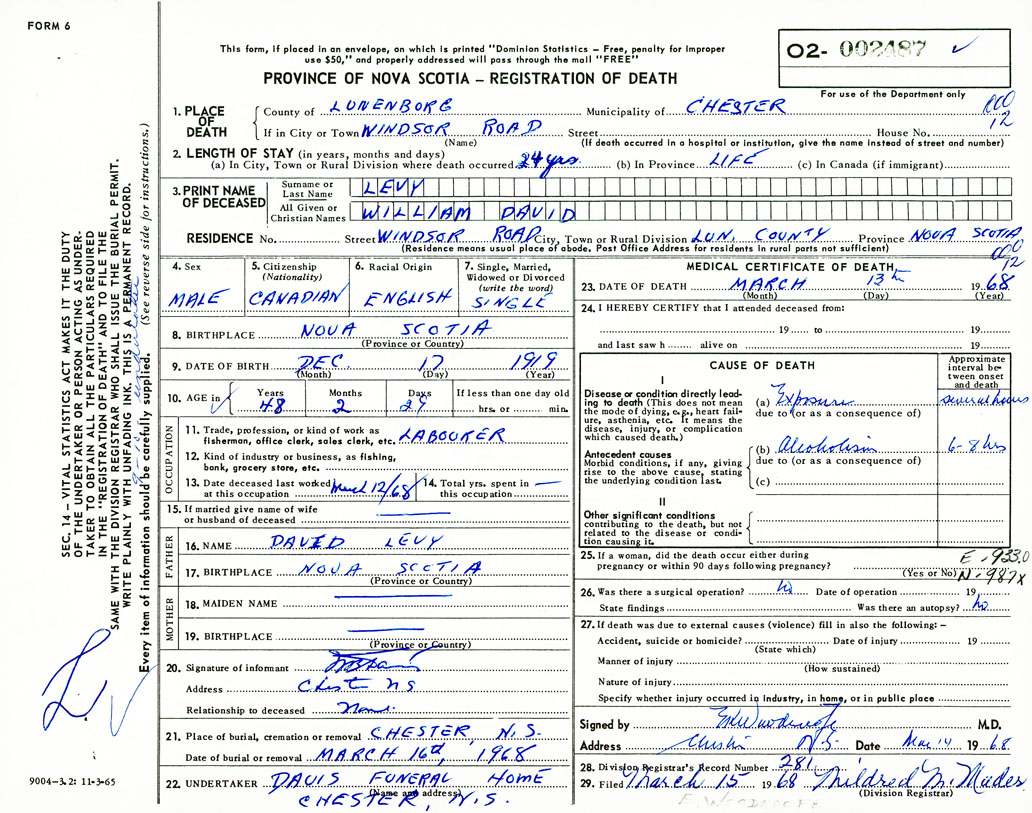 FORM 6
This form, if placed in an envelope, on which is printed "Dominion Statistics – Free, penalty for improper
use $50," and properly addressed will pass through the mail "FREE"
PROVINCE OF NOVA SCOTIA – REGISTRATION OF DEATH
O2- 002487 ✓
For use of the Department only
000
12
1. PLACE OF DEATH
County of LUNENBORG Municipality of CHESTER
If in City or Town WINDSOR ROAD Street House No.
(Name) (If death occurred in a hospital or institution, give the name instead of street and number)
2. LENGTH OF STAY (in years, months and days)
(a) In City, Town or Rural Division where death occurred 24 yrs (b) In Province LIFE (c) In Canada (if immigrant)
3. PRINT NAME OF DECEASED
Surname or Last Name LEVY
All Given or Christian Names WILLIAM DAVID
RESIDENCE No. Street WINDSOR ROAD City, Town or Rural Division LUN. COUNTY Province NOVA SCOTIA
(Residence means usual place of abode. Post Office Address for residents in rural parts not sufficient)
000
12
4. Sex MALE
5. Citizenship (Nationality) CANADIAN
6. Racial Origin ENGLISH
7. Single, Married, Widowed or Divorced (write the word) SINGLE
8. BIRTHPLACE NOVA SCOTIA
(Province or Country)
9. DATE OF BIRTH DEC. 17 1919
(Month) (Day) (Year)
10. AGE in Years 48 Months 2 Days 27 If less than one day old hrs. or min.
OCCUPATION
11. Trade, profession, or kind of work as
fisherman, office clerk, sales clerk, etc. LABOURER
12. Kind of industry or business, as fishing,
bank, grocery store, etc.
13. Date deceased last worked at this occupation March 12/68
14. Total yrs. spent in this occupation —
15. If married give name of wife
or husband of deceased
FATHER
16. NAME DAVID LEVY
17. BIRTHPLACE NOVA SCOTIA
(Province or Country)
MOTHER
18. MAIDEN NAME
19. BIRTHPLACE
(Province or Country)
20. Signature of informant
Address Chester NS
Relationship to deceased
21. Place of burial, cremation or removal CHESTER, N.S.
Date of burial or removal MARCH 16th, 1968
22. UNDERTAKER DAVIS FUNERAL HOME
(Name and address)
CHESTER, N.S.
MEDICAL CERTIFICATE OF DEATH
23. DATE OF DEATH MARCH 13th 1968
(Month) (Day) (Year)
24. I HEREBY CERTIFY that I attended deceased from:
19 to 19
and last saw h alive on 19
CAUSE OF DEATH
Approximate interval between onset and death
I
Disease or condition directly leading to death (This does not mean the mode of dying, e.g., heart failure, asthenia, etc. It means the disease, injury, or complication which caused death.)
(a) Exposure several hours
due to (or as a consequence of)
Antecedent causes
Morbid conditions, if any, giving rise to the above cause, stating the underlying condition last.
(b) Alcoholism 6-8 hrs
due to (or as a consequence of)
(c)
II
Other significant conditions
contributing to the death, but not related to the disease or condition causing it.
25. If a woman, did the death occur either during
pregnancy or within 90 days following pregnancy?
(Yes or No)
E -933.0
N-987X
26. Was there a surgical operation? No Date of operation 19
State findings Was there an autopsy? No
27. If death was due to external causes (violence) fill in also the following: –
Accident, suicide or homicide? Date of injury 19
(State which)
Manner of injury
(How sustained)
Nature of injury
Specify whether injury occurred in industry, in home, or in public place
Signed by M.D.
Address Chester N.S. Date Mar 14 1968
28. Division Registrar's Record Number 281
29. Filed March 15 1968 Mildred M. Mades
(Division Registrar)
SEC. 14 – VITAL STATISTICS ACT MAKES IT THE DUTY
OF THE UNDERTAKER OR PERSON ACTING AS UNDER-
TAKER TO OBTAIN ALL THE PARTICULARS REQUIRED
IN THE "REGISTRATION OF DEATH" AND TO FILE THE
SAME WITH THE DIVISION REGISTRAR WHO SHALL ISSUE THE BURIAL PERMIT.
WRITE PLAINLY WITH UNFADING INK. THIS IS A PERMANENT RECORD.
Every item of information should be carefully supplied. (See reverse side for instructions.)
9004-3.2: 11-3-65